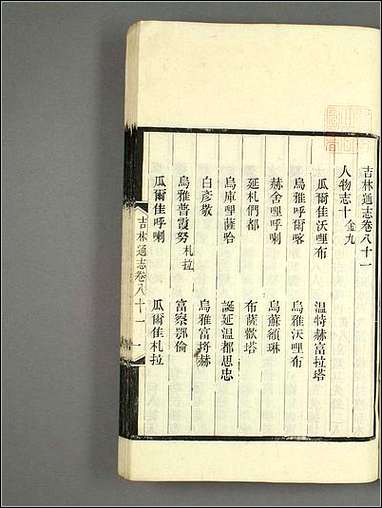 吉林通志卷八十一
人物志十 金九
瓜爾佳沃哩布 溫特赫富拉塔
烏雅呼爾喀 烏雅沃哩布
赫舍哩呼喇 烏蘇額琳
延札們都 布薩歡塔
烏庫哩薩哈 誕延溫都思忠
白彥敬 烏雅富埒赫
烏雅普霞努 富察鄂倫
札拉
瓜爾佳呼喇 瓜爾佳札拉
吉林通志卷八十一 一